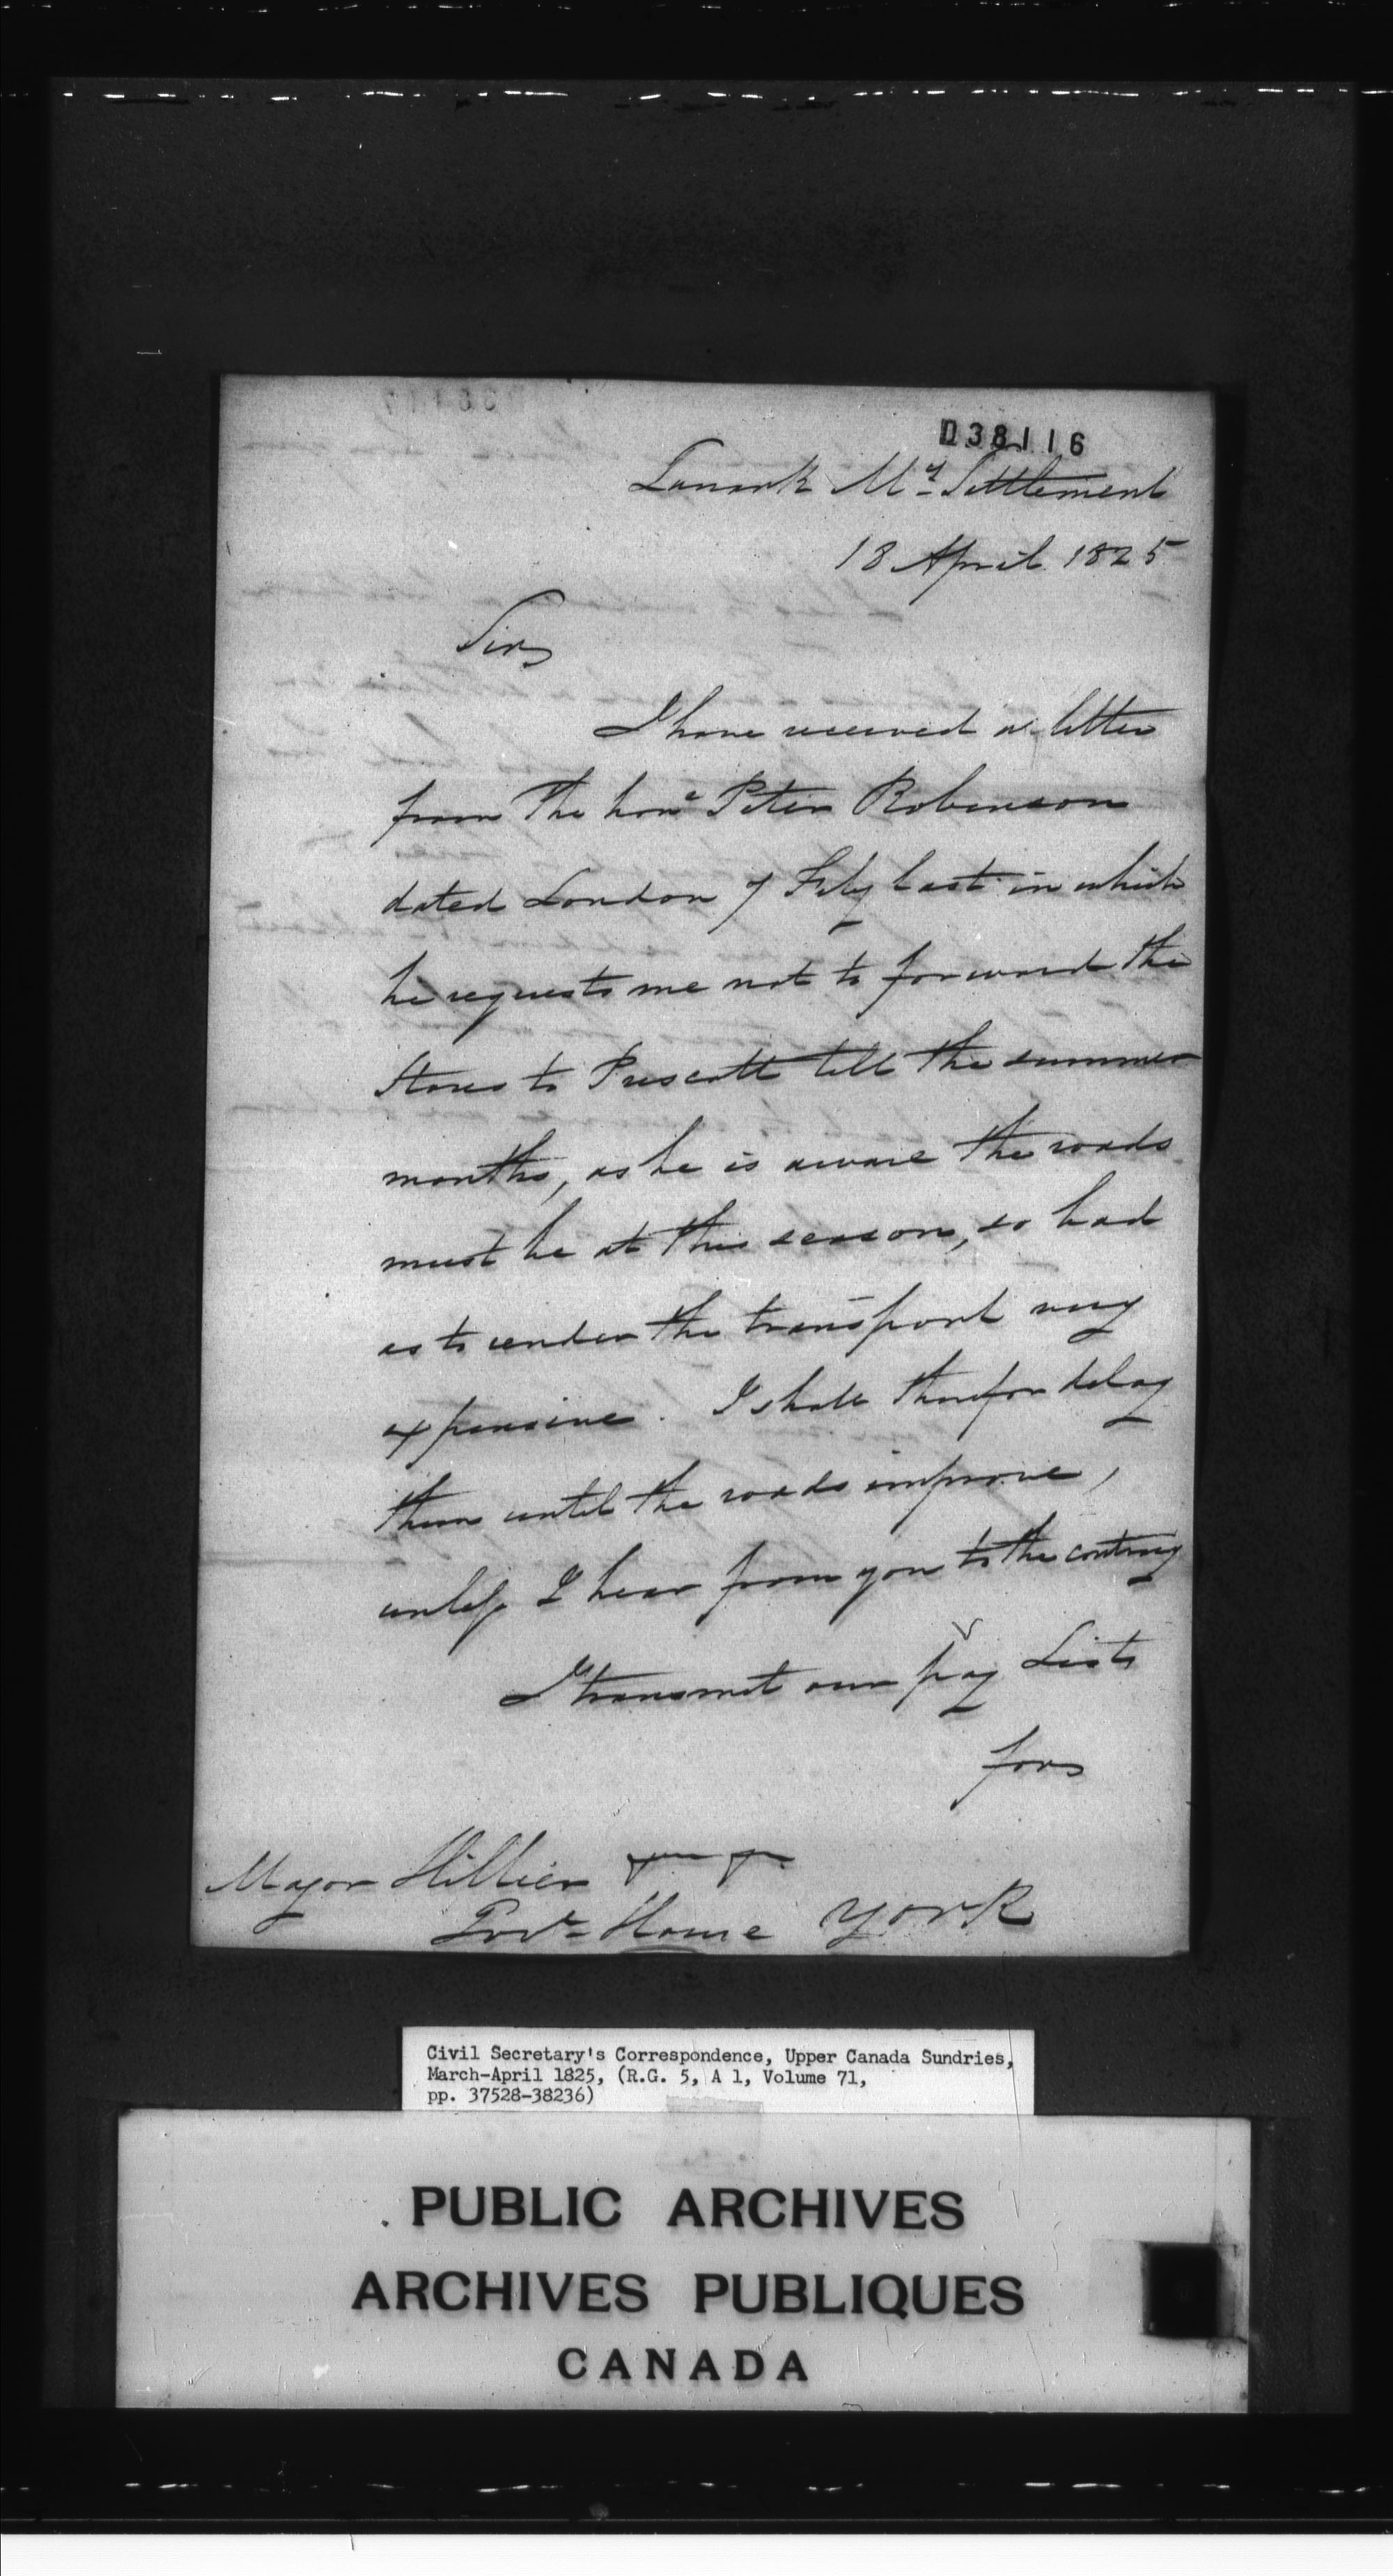 D38116
Lanark My Settlement
18 April 1825
Sir,
I have received a letter
from The hone Peter Robinson
dated London 7 Feby last in which
he requests me not to forward the
Stores to Prescott till the summer
months, as he is aware the roads
must be at this season, so bad
as to render the transport very
expensive. I shall therefor delay
them until the roads improve,
unless I hear from you to the contrary
I transmit our pay Lists
for
Major Hillier
Govt House York
Civil Secretary's Correspondence, Upper Canada Sundries,
March-April 1825, (R.G. 5, A 1, Volume 71,
pp. 37528-38236)
PUBLIC ARCHIVES
ARCHIVES PUBLIQUES
CANADA